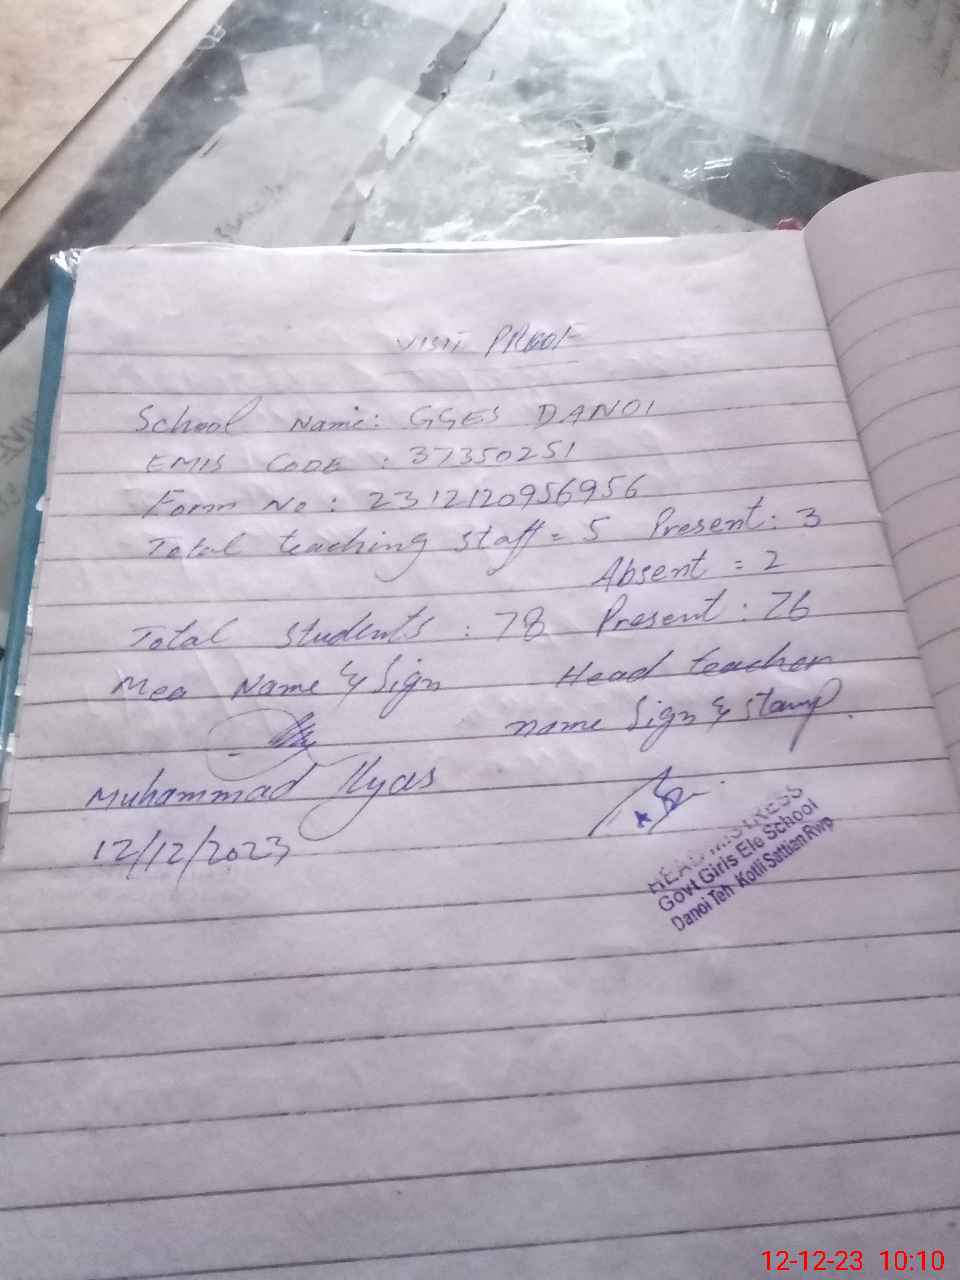 VISIT PROOF
School Name: GGES DANOI
EMIS CODE : 37350251
Form No: 2312120956956
Total teaching staff = 5 Present: 3
Absent = 2
Total students : 78 Present: 76
Mea Name & Sign Head teacher
name Sign & stamp.
Muhammad Ilyas
12/12/2023
HEAD MISTRESS
Govt Girls Ele School
Danoi Teh Kotli Sattian Rwp
12-12-23 10:10